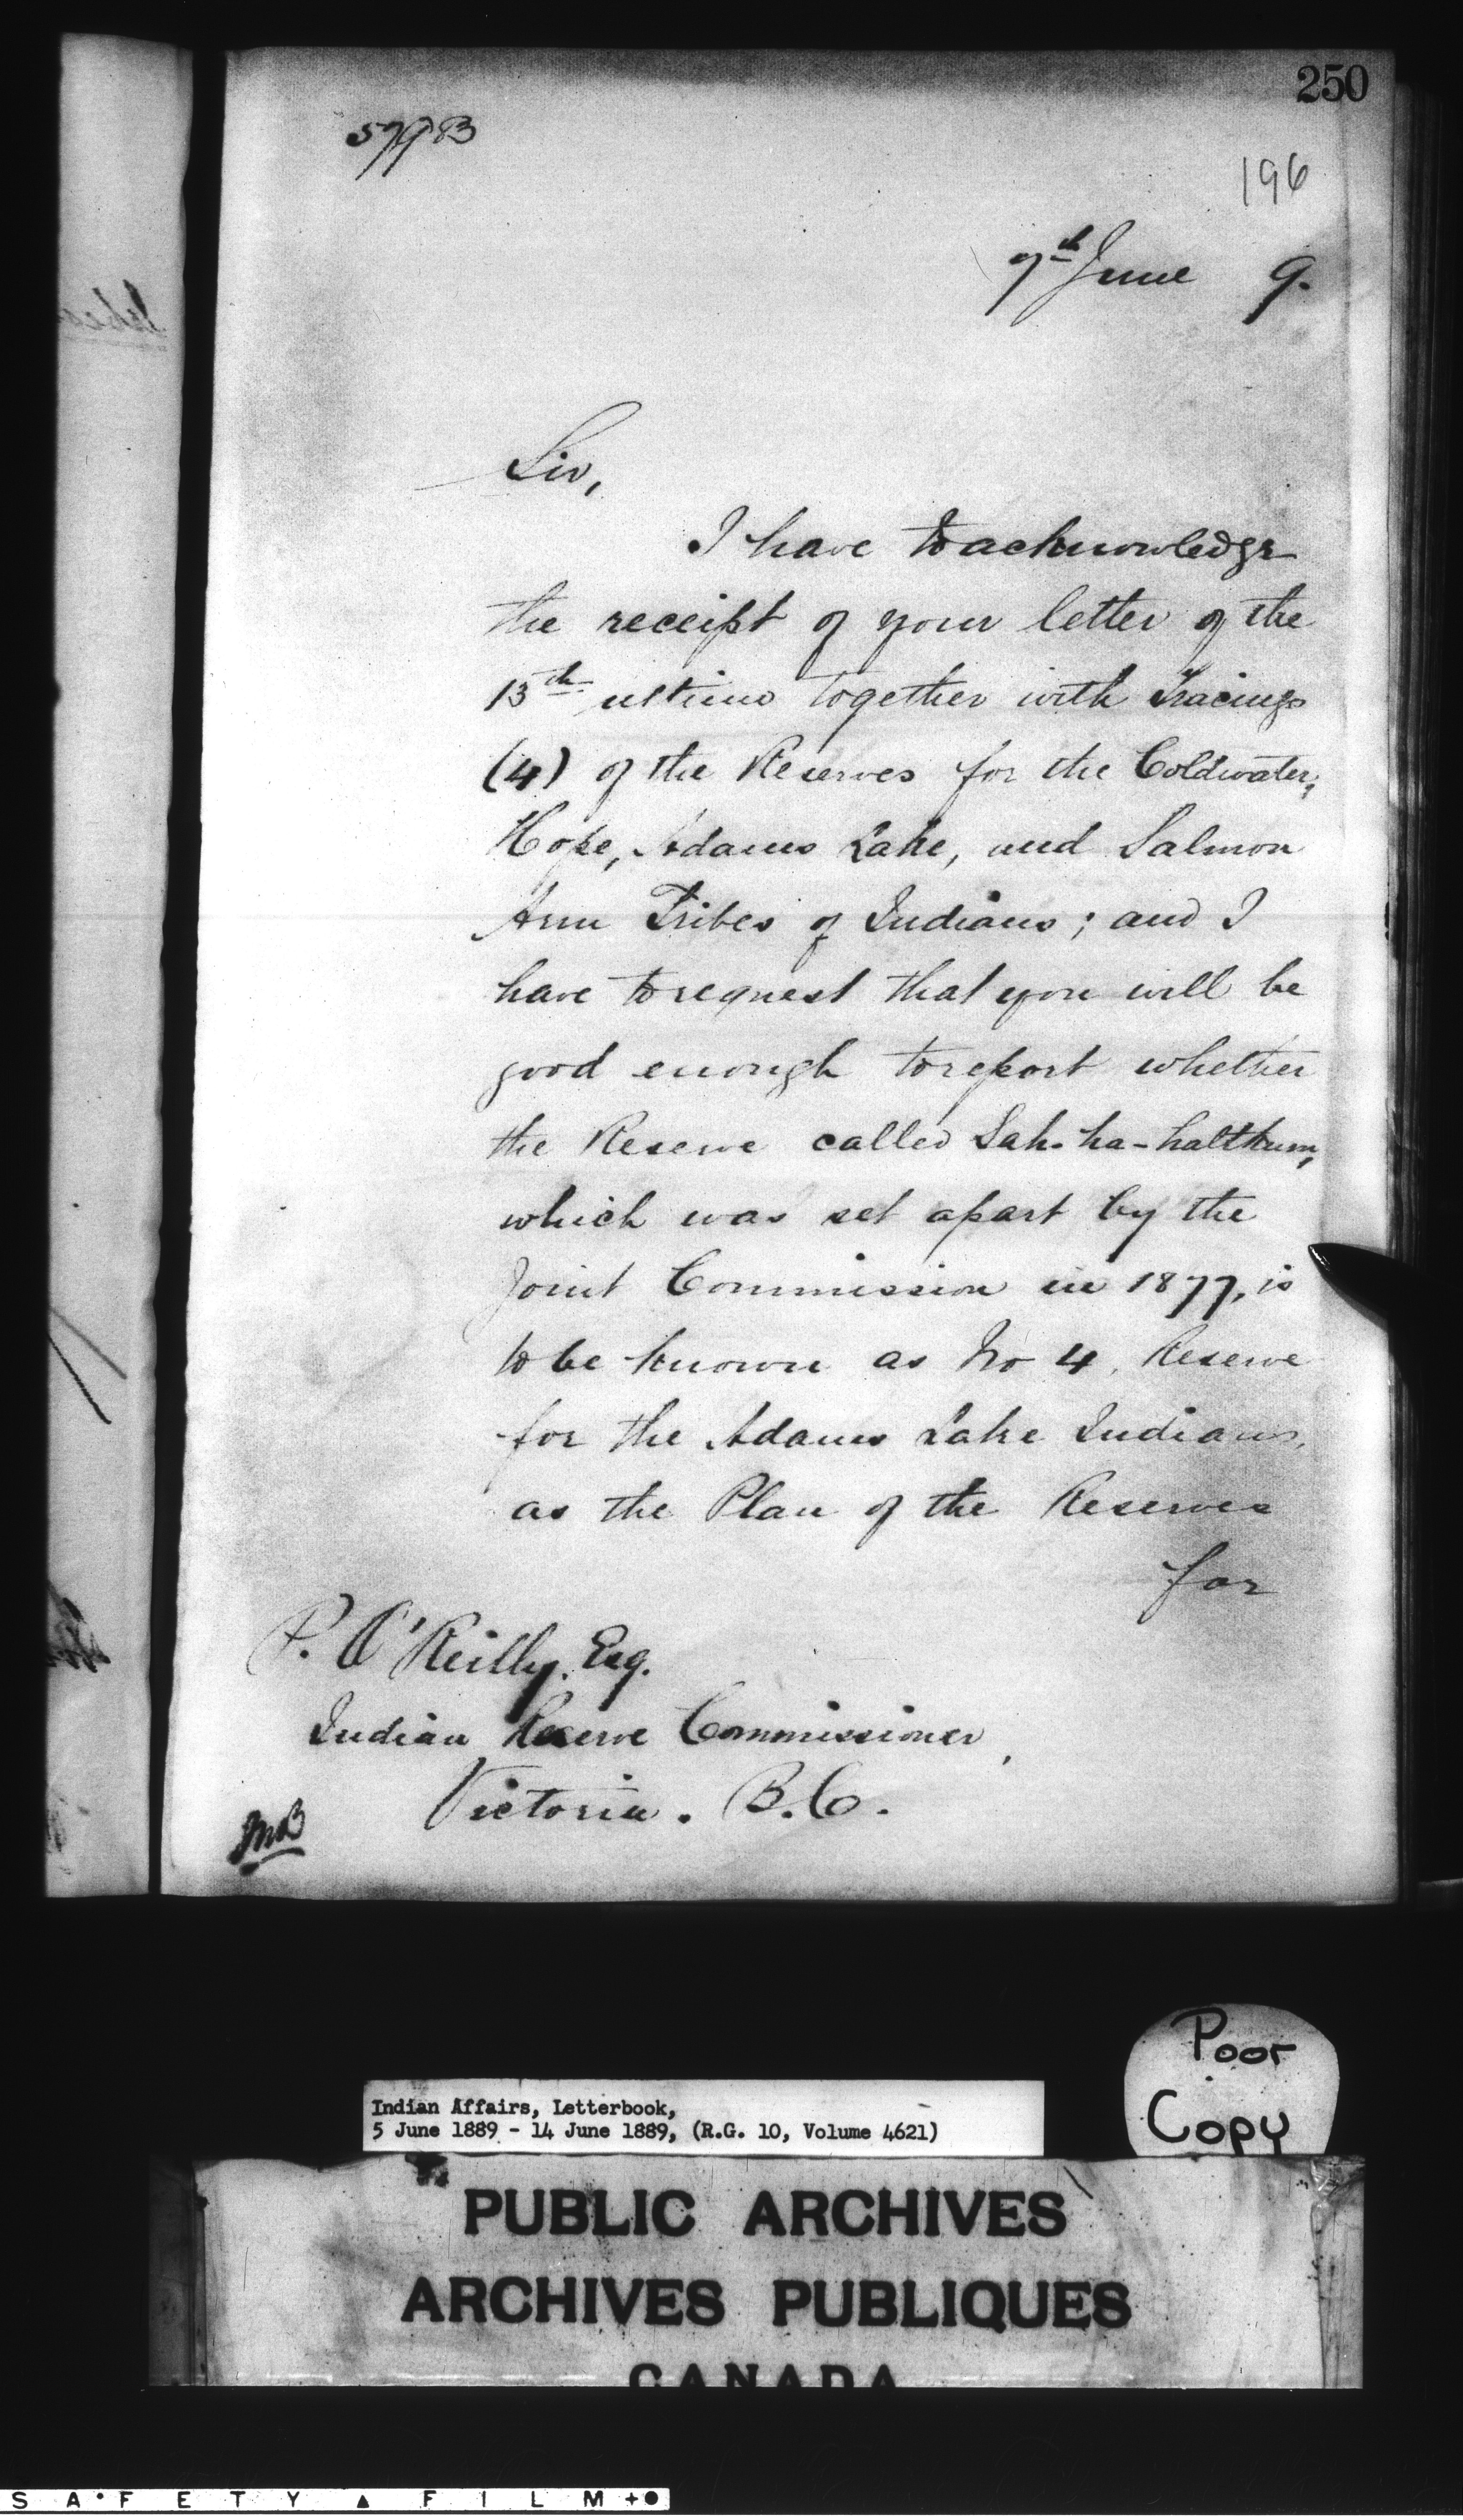 250
579B
196
7th June 9.
Sir,
I have to acknowledge
the receipt of your letter of the
15th ultimo together with Tracings
(4) of the Reserves for the Coldwater,
Hope, Adams Lake, and Salmon
Arm Tribes of Indians; and I
have to request that you will be
good enough to report whether
the Reserve called Sah-ha-haltkum,
which was set apart by the
Joint Commission in 1877, is
to be known as No 4, Reserve
for the Adams Lake Indians,
as the Plan of the Reserves
for
P. O'Reilly. Esq.
Indian Reserve Commissioner,
Victoria. B.C.
Poor
Copy
Indian Affairs, Letterbook,
5 June 1889 - 14 June 1889, (R.G. 10, Volume 4621)
PUBLIC ARCHIVES
ARCHIVES PUBLIQUES
CANADA
SAFETY ▲ FILM